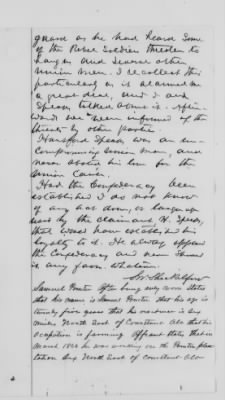 guard as he had heard some
of the Rebel Soldiers threaten to
hang him and several other
Union men. I recollect this
particularly as it alarmed me
a great deal, and I and
Speer talked about it. After-
wards we were informed of the
threats by other parties.
Hansford Speer was an un-
compromising Union man, and
never
Union Cause.
Had the Confederacy been
established I do not know
of any act done, or language
used by the claimant H. Speer,
that would have established his
loyalty to it. He always opposed
the Confederacy and never
in any form whatever.
Samuel Porter After being duly sworn states
that his name is Samuel Porter that his age is
twenty five years that his residence is six
miles North East of Courtland Ala that his
occupation is farming Affiant states that in
March 186 he was working on the Porter plan
tation Six North East of Courtland Ala